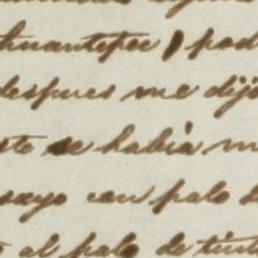 huantepec) pod
despues me dij
se habia m
sayo con palo
al palo de tint